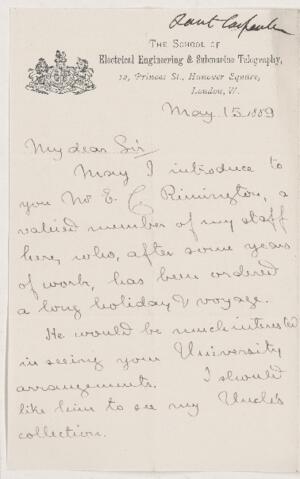 Lant Carpenter
The School of
Electrical Engineering & Submarine Telegraphy,
12, Princes St., Hanover Square,
London, W.
May 15 1889
My dear Sir
May I introduce to
you Mr E. C. Rimington, a
valued member of my staff
here, who, after some years
of work, has been ordered
a long holiday & voyage.
He would be much interested
in seeing your University
arrangements. I should
like him to see my Uncle's
collection.